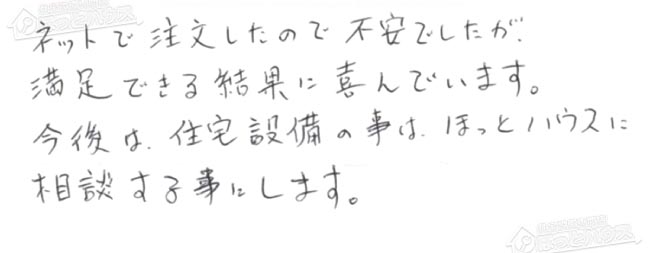 ネットで注文したので不安でしたが、
満足できる結果に喜んでいます。
今後は、住宅設備の事は、ほっとハウスに
相談する事にします。
ほっとハウス